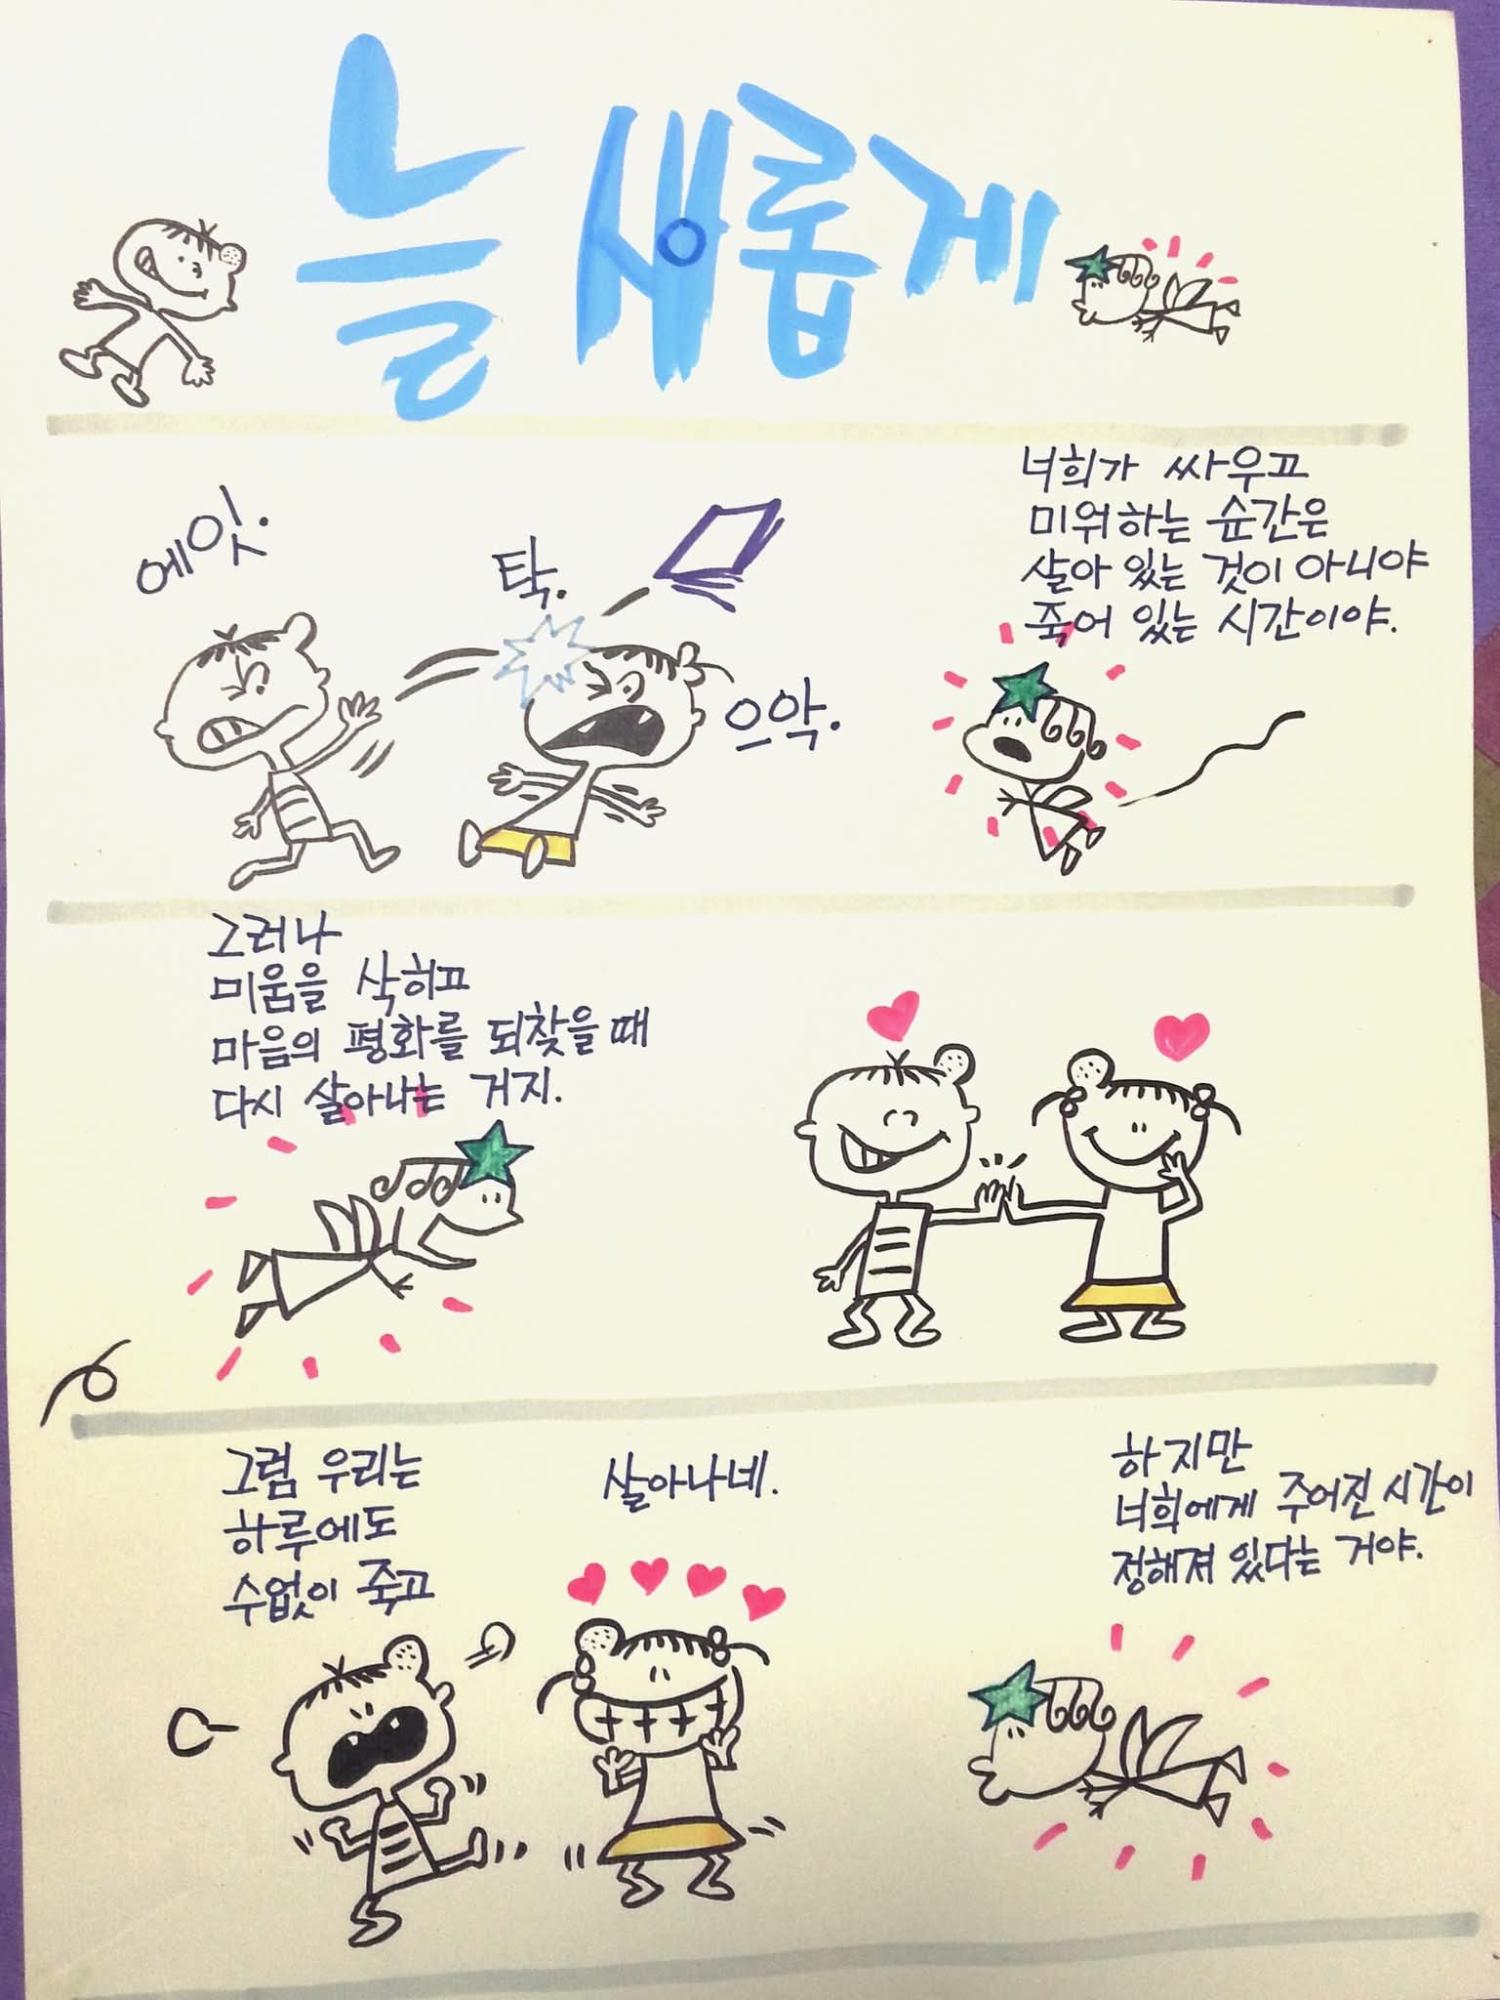 늘 새롭게
에잇.
탁.
으악.
너희가 싸우고
미워하는 순간은
살아 있는 것이 아니야
죽어 있는 시간이야.
그러나
미움을 삭히고
마음의 평화를 되찾을 때
다시 살아나는 거지.
그럼 우리는
하루에도
수없이 죽고
살아나네.
하지만
너희에게 주어진 시간이
정해져 있다는 거야.